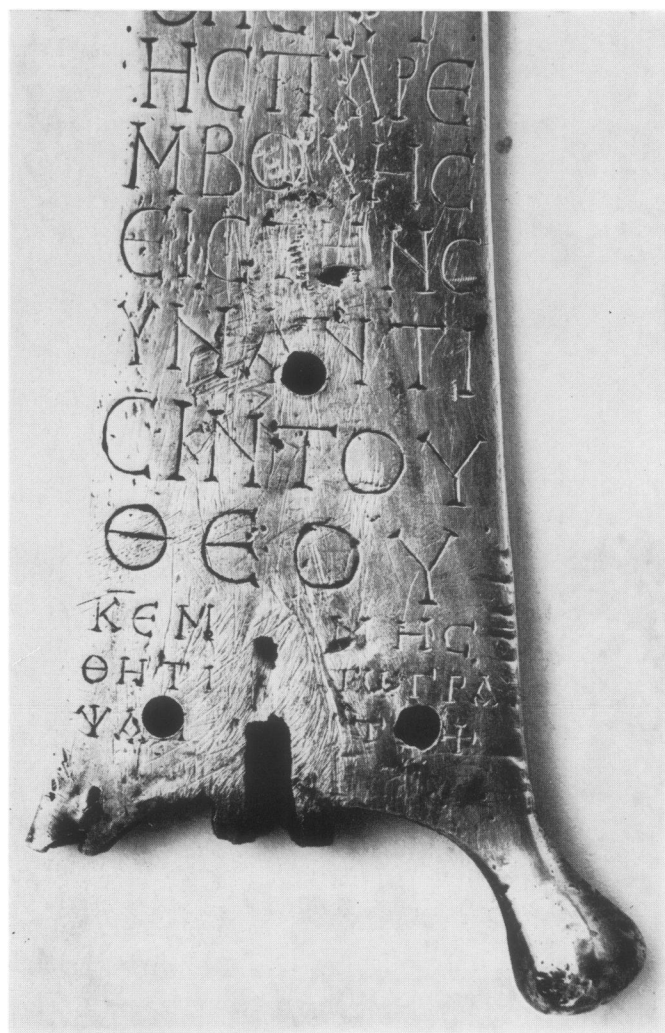 ΗϹΠΑΡΕ
ΜΒΟΛΗϹ
ΕΙϹΤΗΝϹ
ΥΝΑΝΤΙ
ϹΙΝΤΟΥ
ΘΕΟΥ
Κ̅ΕΜ ΗϹ
ΘΗΤΙ ΓΡΑ
ΨΑ